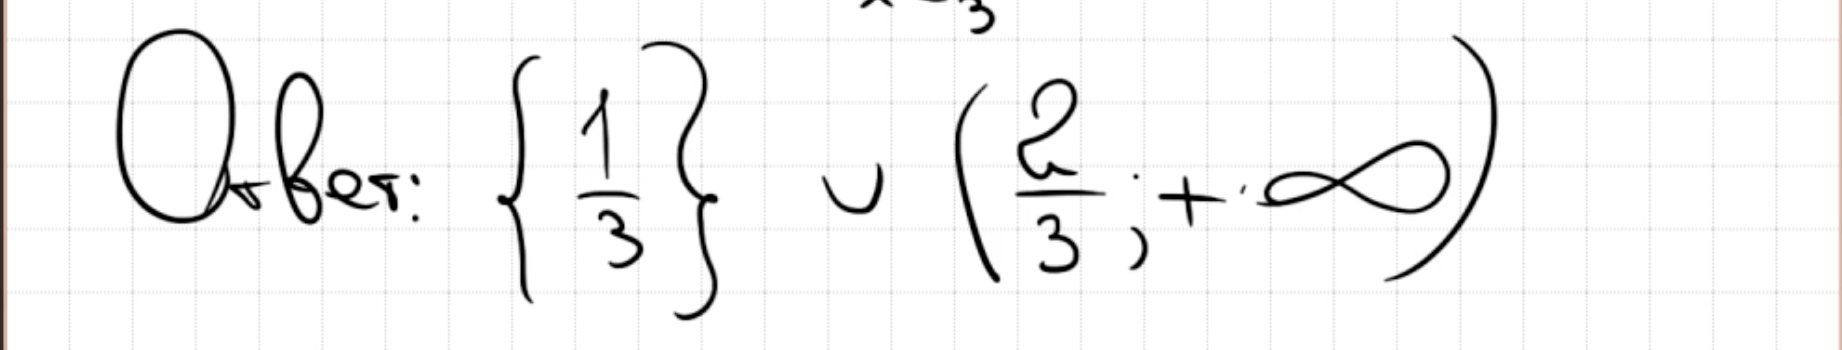 Ответ: {1/3} ∪ (2/3; +∞)